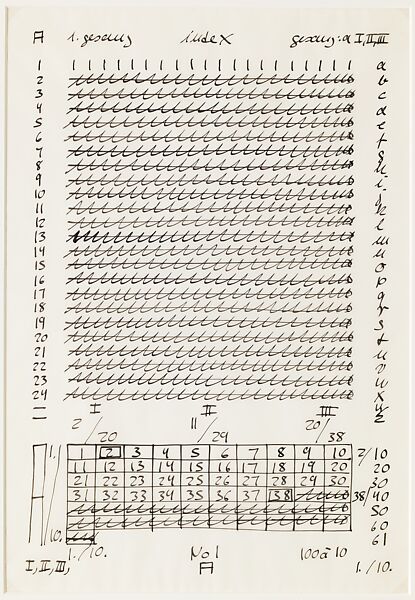 A 1. gesang index gesang: a I, II, III
1 | | | | | | | | | | | | | | | | | | | | a
2 b
3 c
4 d
5 e
6 f
7 g
8 h
9 i
10 j
11 k
12 l
13 m
14 n
15 o
16 p
17 q
18 r
19 s
20 t
21 u
22 v
23 w
24 x
I II III
2/20 11/29 20/38
1./ 1 2 3 4 5 6 7 8 9 10 2/10
11 12 13 14 15 16 17 18 19 20 20
21 22 23 24 25 26 27 28 29 30 30
31 32 33 34 35 36 37 38 38/40
50
60
10. 61
1./10. No 1 100 à 10
I, II, III, A 1./10.